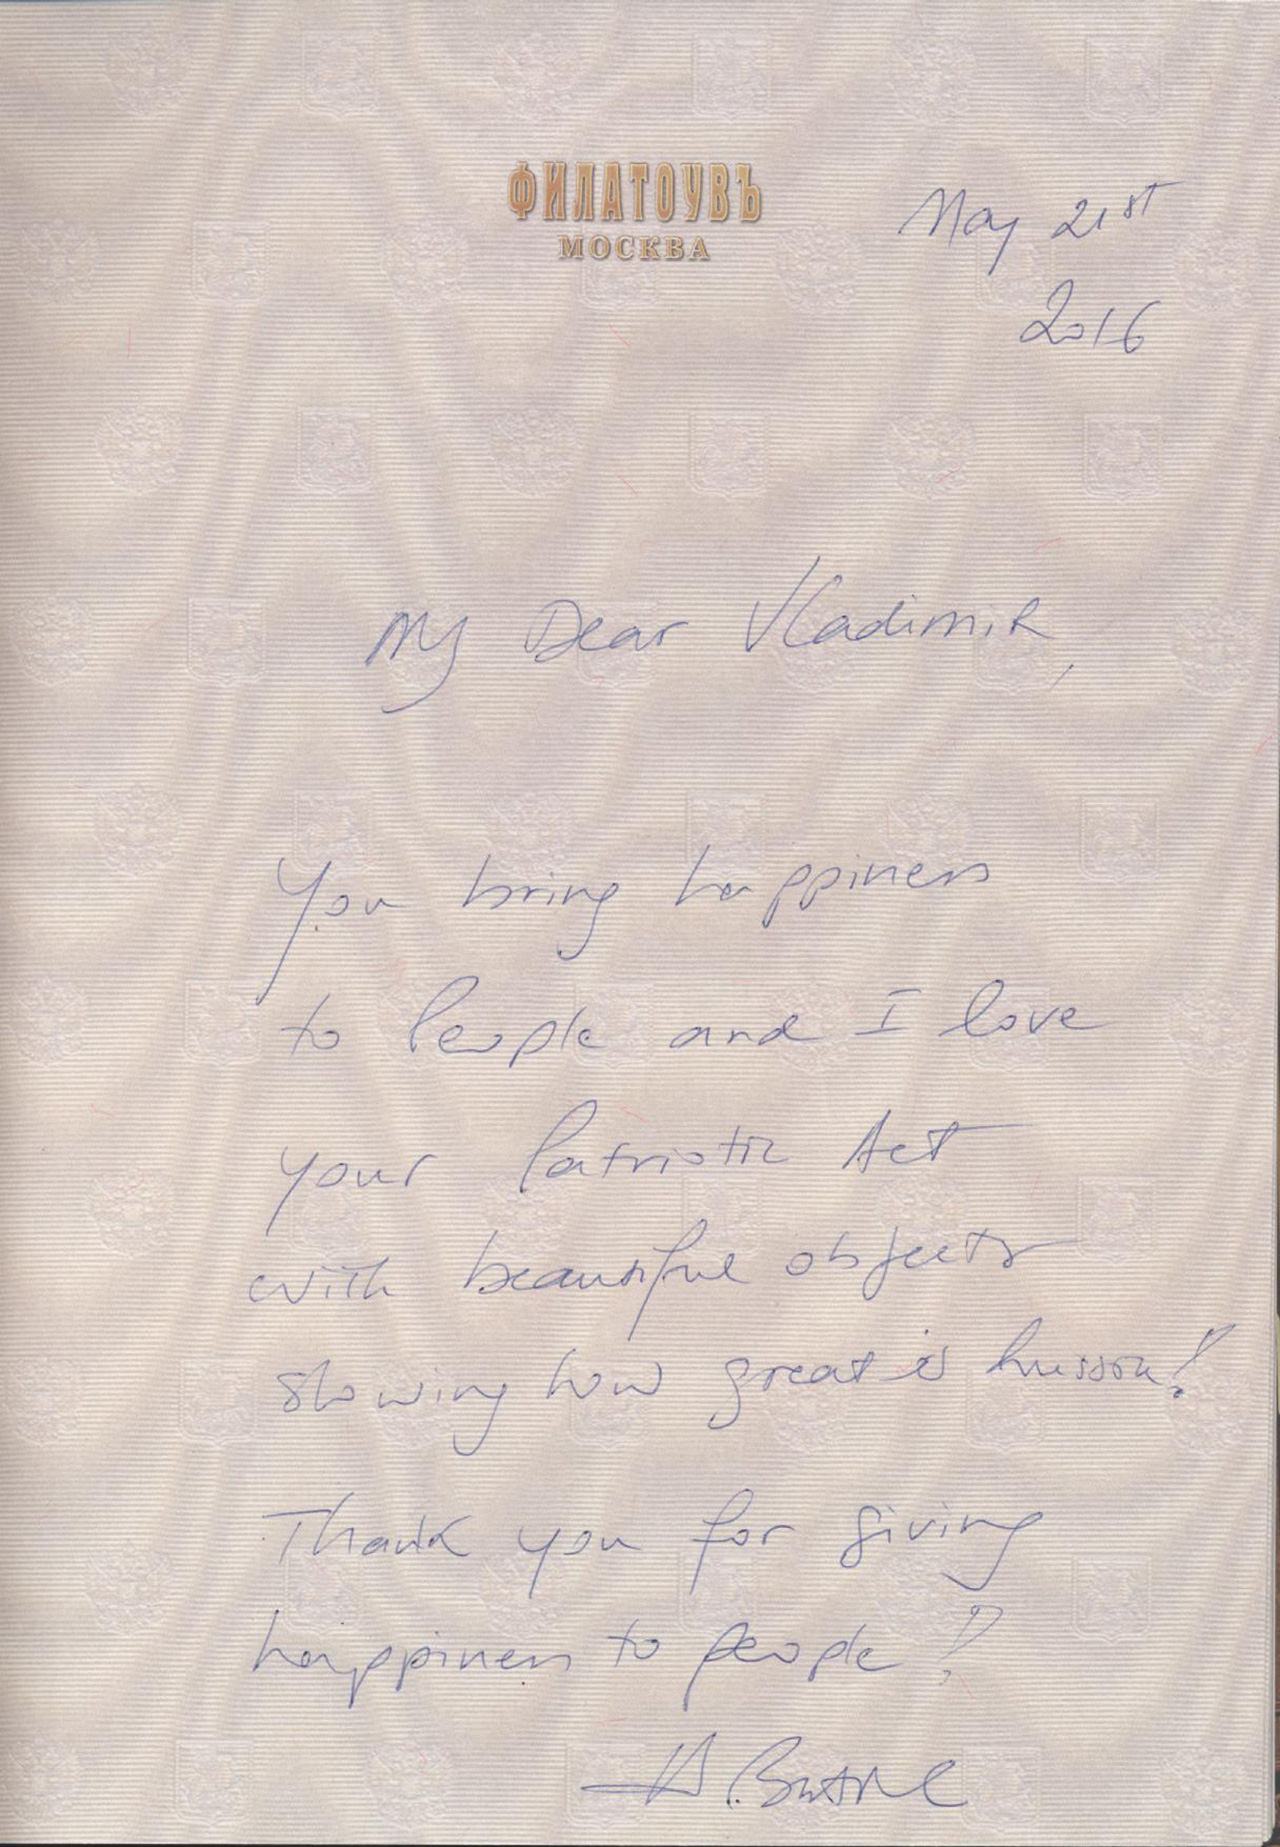 ФИЛАТОУВЪ
МОСКВА
May 21st
2016
My Dear Vladimir,
You bring happiness
to People and I love
your Patriotic Act
with beautiful objects
showing how great is
Thank you for giving
happiness to people!